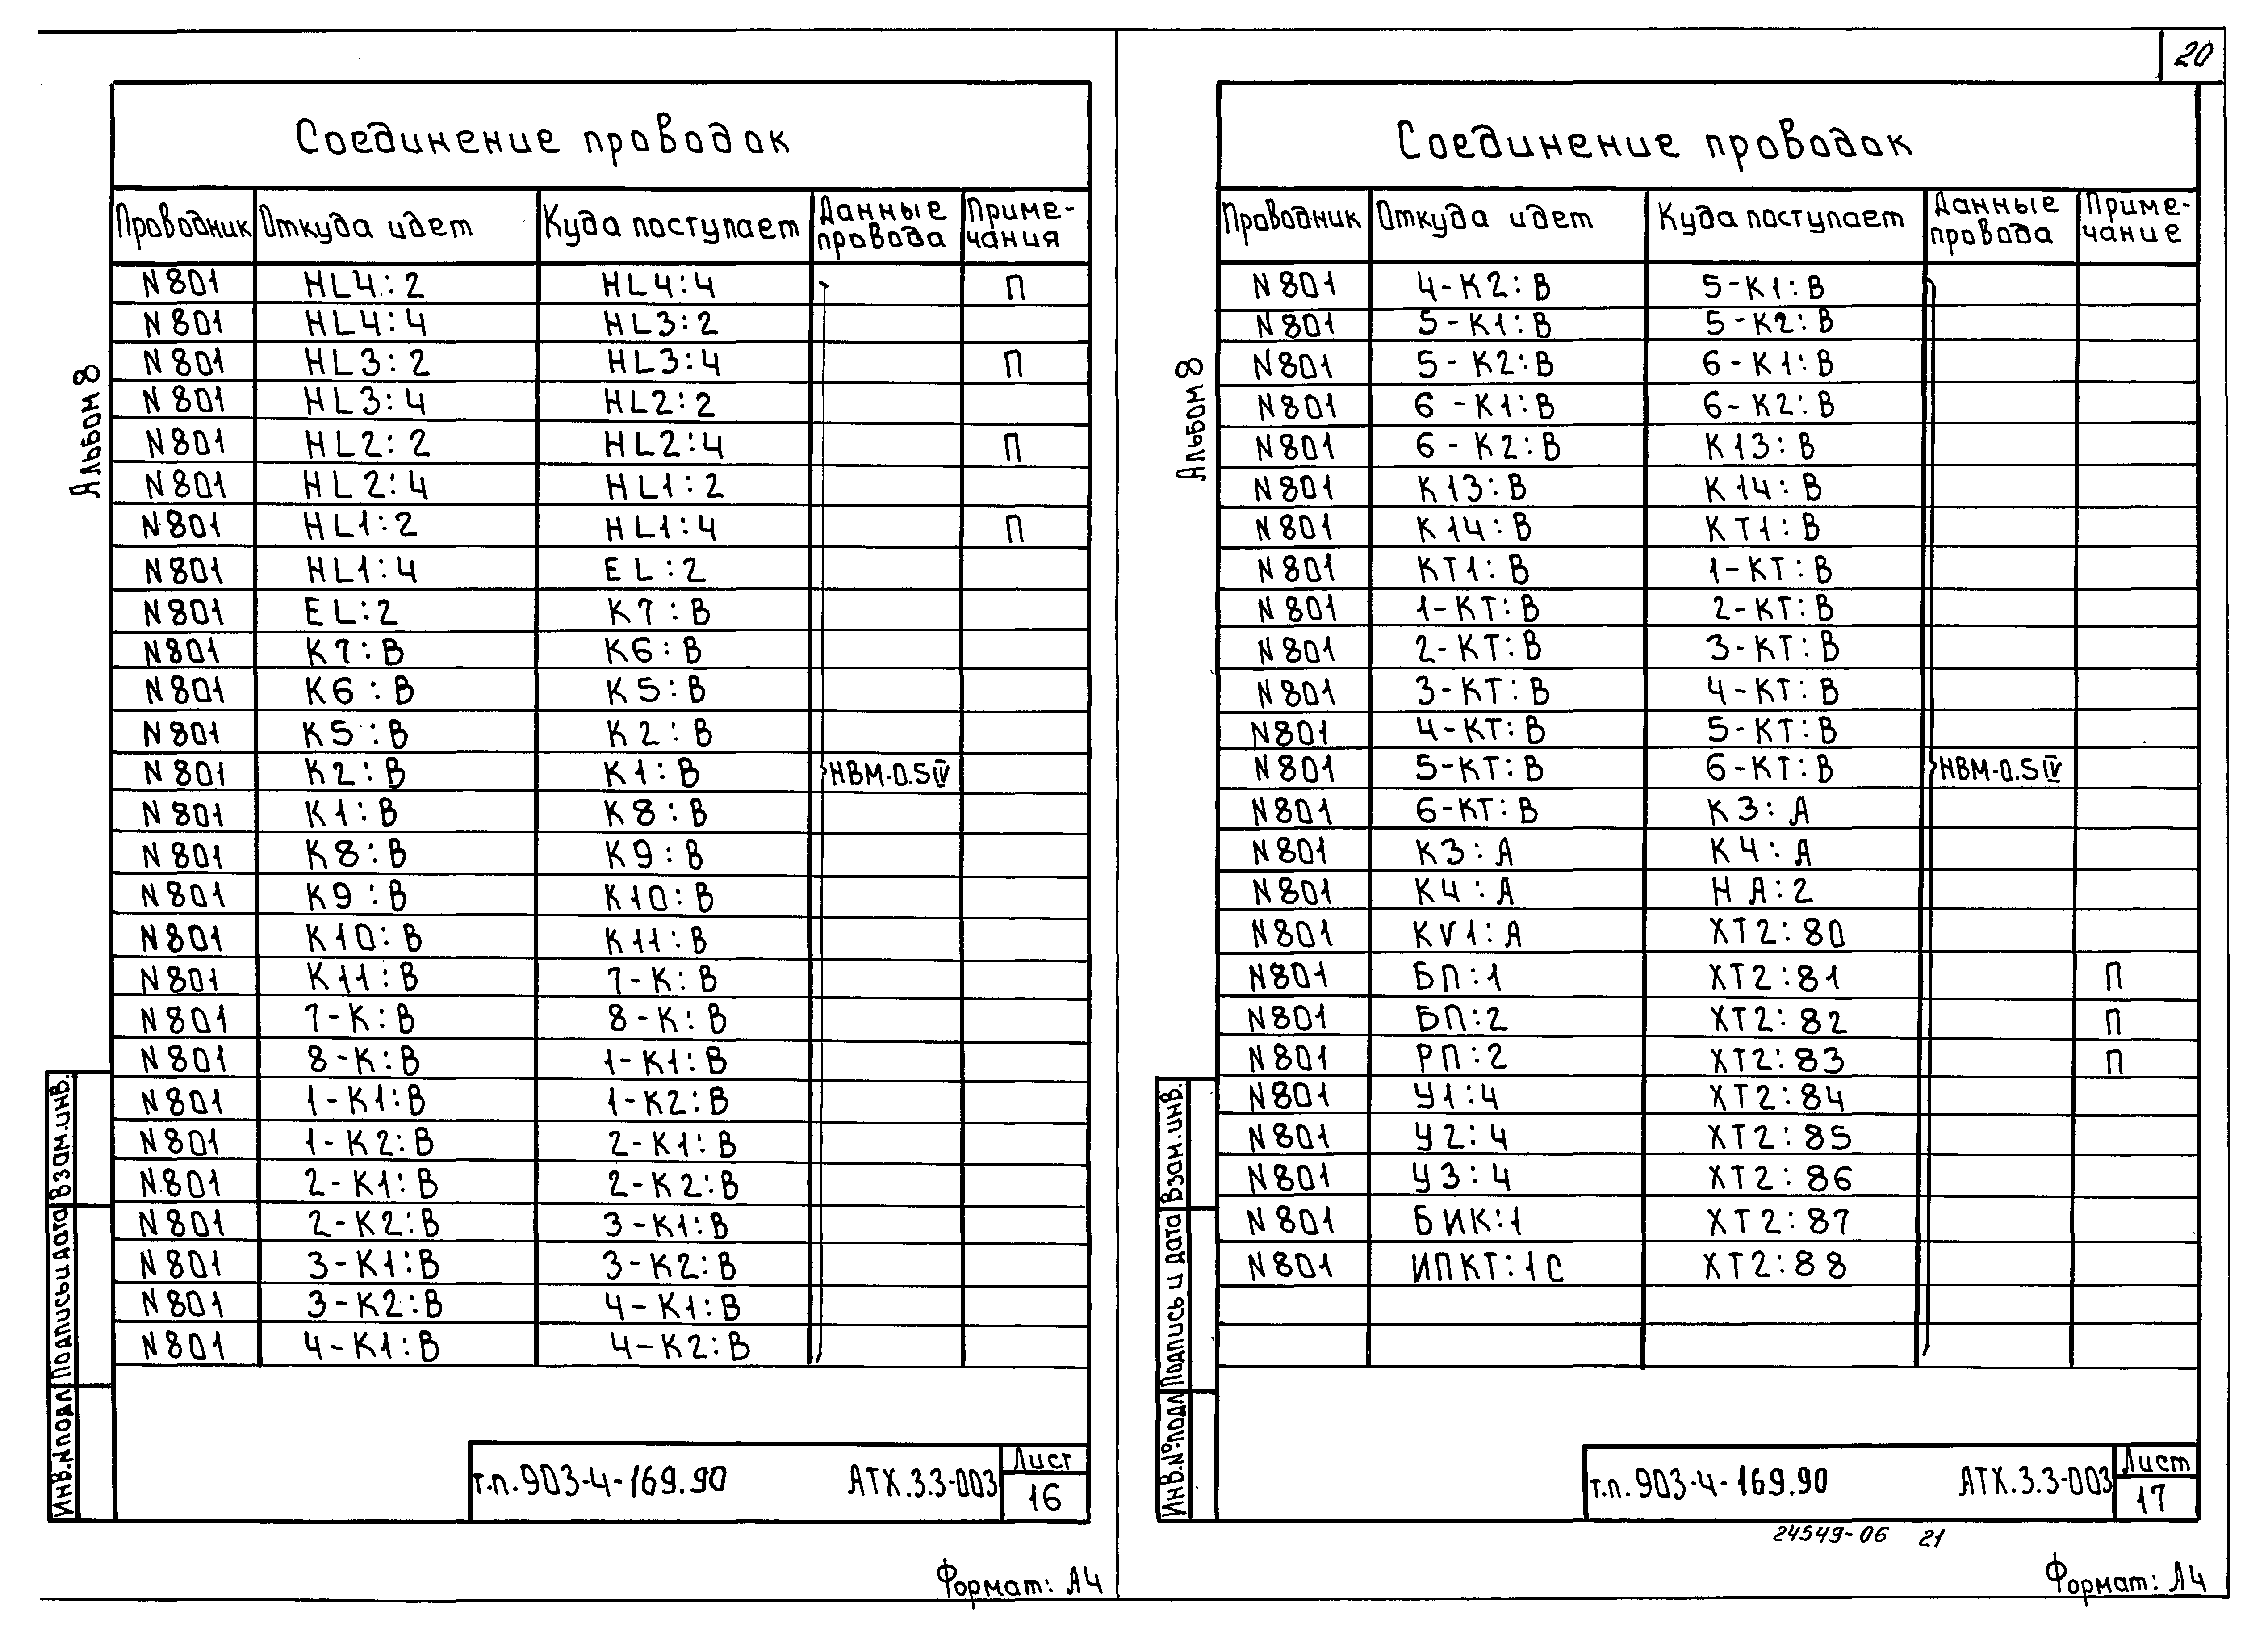 20
Альбом 8
Соединение проводок
Проводник Откуда идет Куда поступает Данные провода Приме-чания
N801 HL4:2 HL4:4 П
N801 HL4:4 HL3:2
N801 HL3:2 HL3:4 П
N801 HL3:4 HL2:2
N801 HL2:2 HL2:4 П
N801 HL2:4 HL1:2
N801 HL1:2 HL1:4 П
N801 HL1:4 EL:2
N801 EL:2 K7:B
N801 K7:B K6:B
N801 K6:B K5:B
N801 K5:B K2:B
N801 K2:B K1:B НВМ-0.5 IV
N801 K1:B K8:B
N801 K8:B K9:B
N801 K9:B K10:B
N801 K10:B K11:B
N801 K11:B 7-K:B
N801 7-K:B 8-K:B
N801 8-K:B 1-K1:B
N801 1-K1:B 1-K2:B
N801 1-K2:B 2-K1:B
N801 2-K1:B 2-K2:B
N801 2-K2:B 3-K1:B
N801 3-K1:B 3-K2:B
N801 3-K2:B 4-K1:B
N801 4-K1:B 4-K2:B
Взам.инв.
Подпись и дата
Инв.№подл
т.п.903-4-169.90 АТХ.3.3-003 Лист
16
Формат: А4
Альбом 8
Соединение проводок
Проводник Откуда идет Куда поступает Данные провода Приме-чание
N801 4-K2:B 5-K1:B
N801 5-K1:B 5-K2:B
N801 5-K2:B 6-K1:B
N801 6-K1:B 6-K2:B
N801 6-K2:B K13:B
N801 K13:B K14:B
N801 K14:B KT1:B
N801 KT1:B 1-KT:B
N801 1-KT:B 2-KT:B
N801 2-KT:B 3-KT:B
N801 3-KT:B 4-KT:B
N801 4-KT:B 5-KT:B
N801 5-KT:B 6-KT:B НВМ-0.5 IV
N801 6-KT:B K3:A
N801 K3:A K4:A
N801 K4:A HA:2
N801 KV1:A XT2:80
N801 БП:1 XT2:81 П
N801 БП:2 XT2:82 П
N801 РП:2 XT2:83 П
N801 У1:4 XT2:84
N801 У2:4 XT2:85
N801 У3:4 XT2:86
N801 БИК:1 XT2:87
N801 ИПКТ:1С XT2:88
Взам.инв.
Подпись и дата
Инв.№подл
т.п.903-4-169.90 АТХ.3.3-003 Лист
17
24549-06 21
Формат: А4